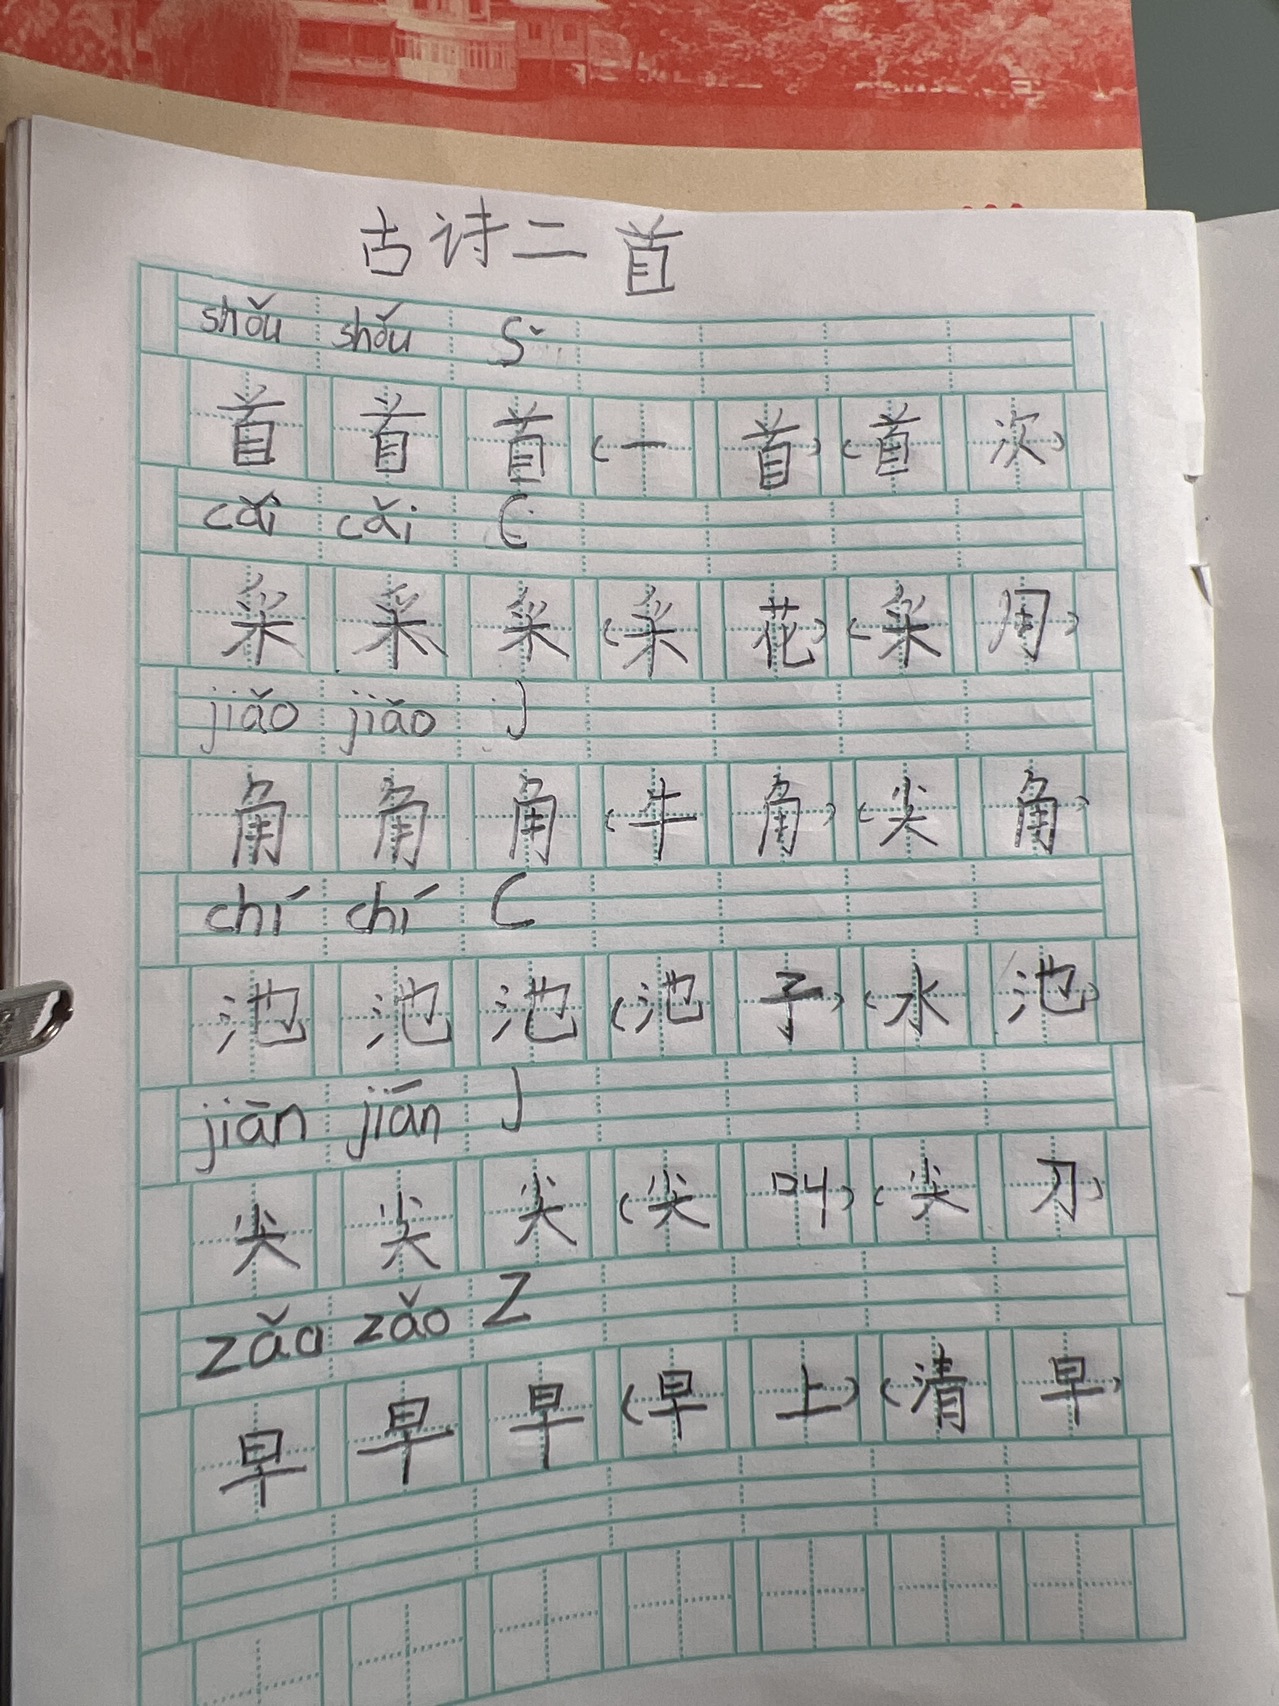 古诗二首
shǒu shǒu s
首 首 首 (一 首) (首 次)
cǎi cǎi c
采 采 采 (采 花) (采 用)
jiǎo jiǎo j
角 角 角 (牛 角) (尖 角)
chí chí c
池 池 池 (池 子) (水 池)
jiān jiān j
尖 尖 尖 (尖 叫) (尖 刀)
zǎo zǎo z
早 早 早 (早 上) (清 早)